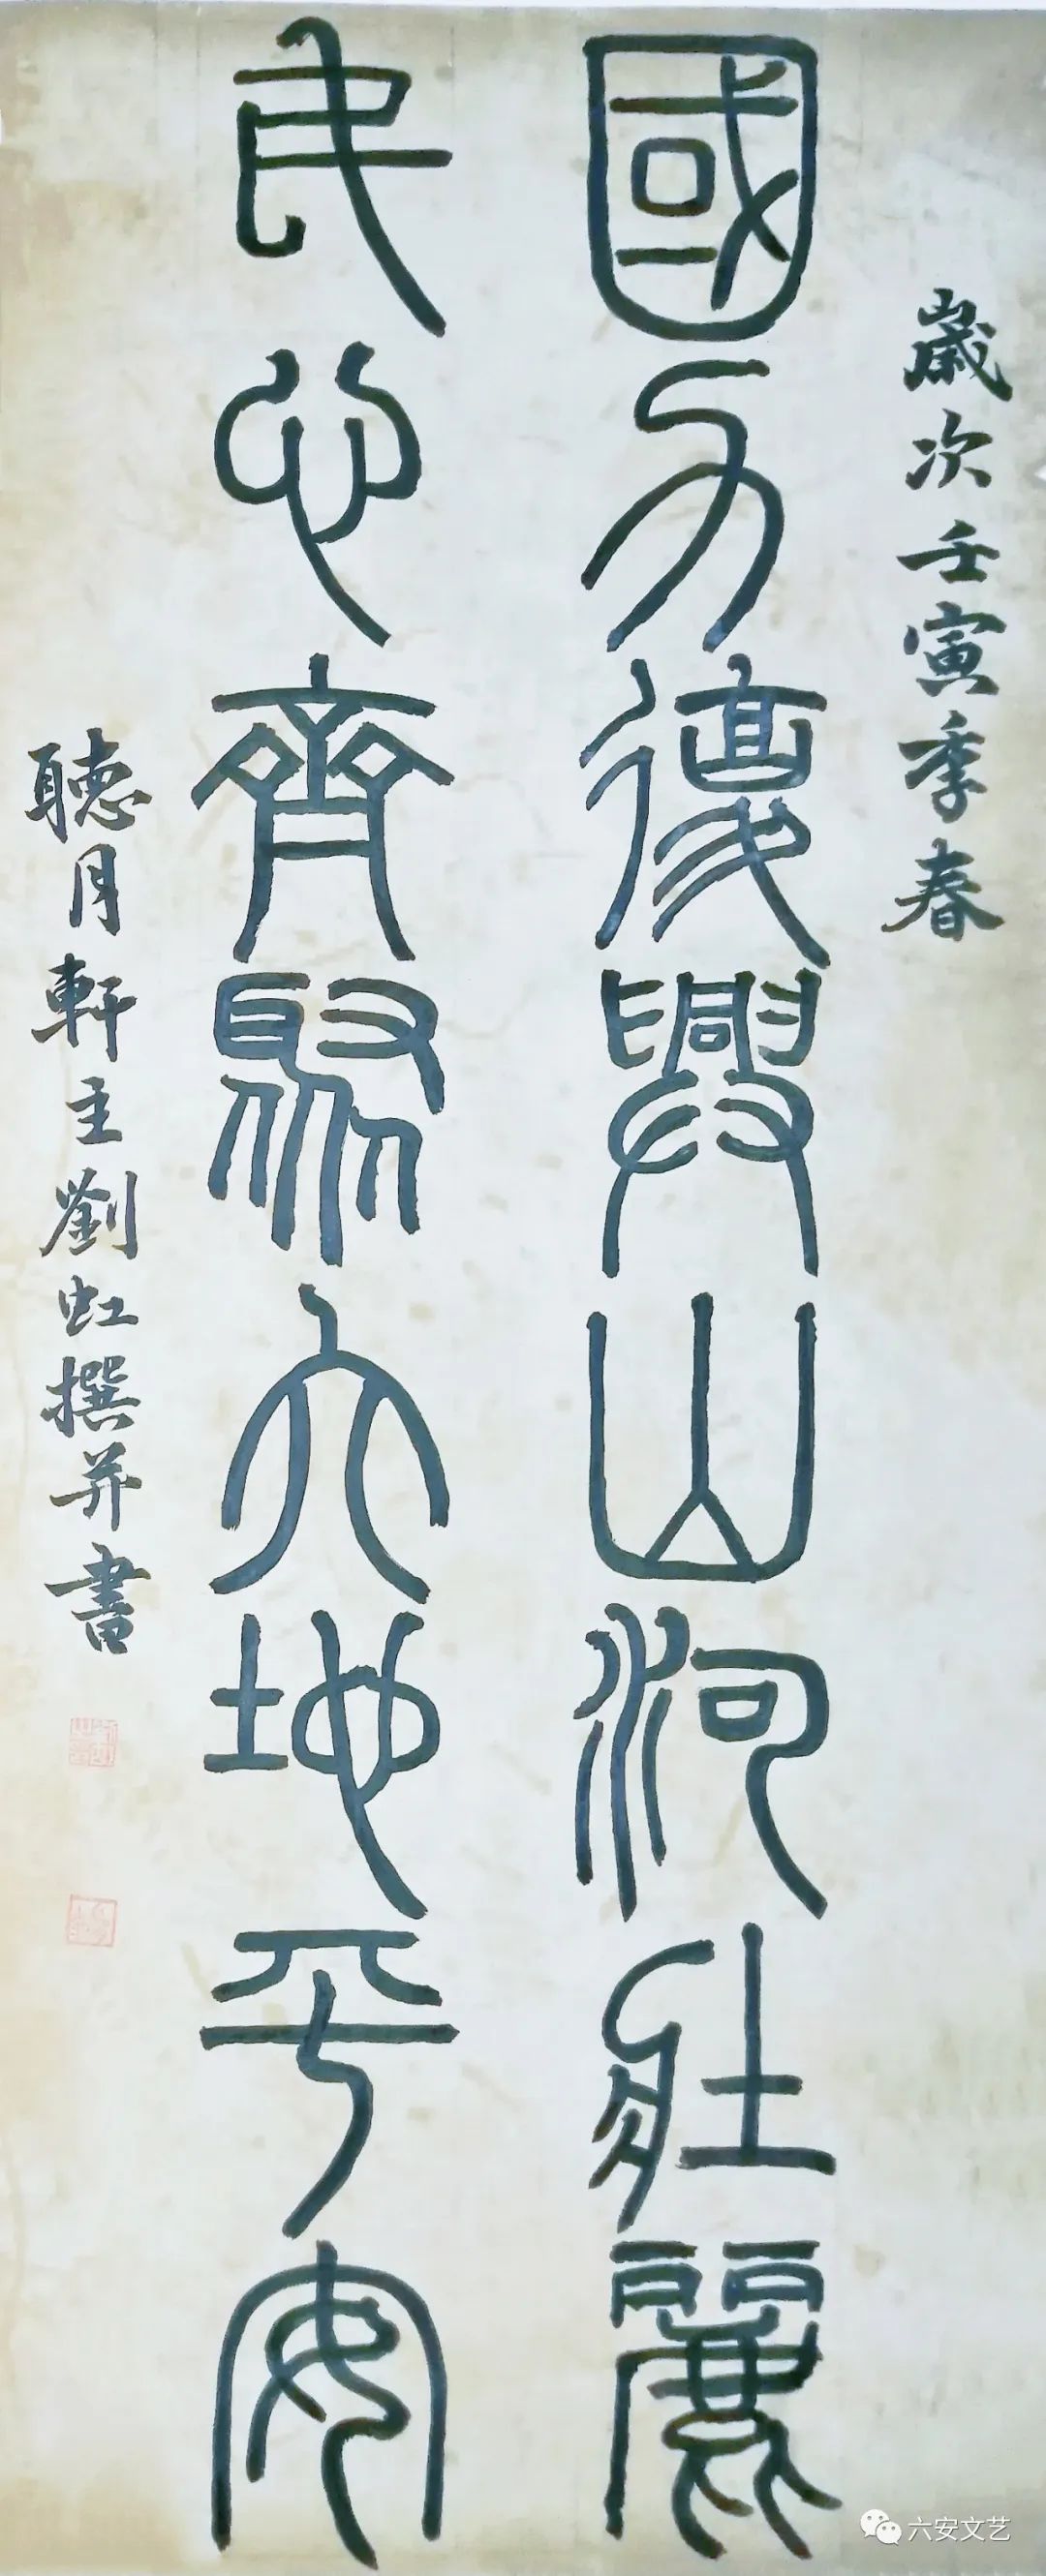 歲次壬寅季春
國力復興山河壯麗
民心齊聚大地平安
聽月軒主劉虹撰并書
六安文艺